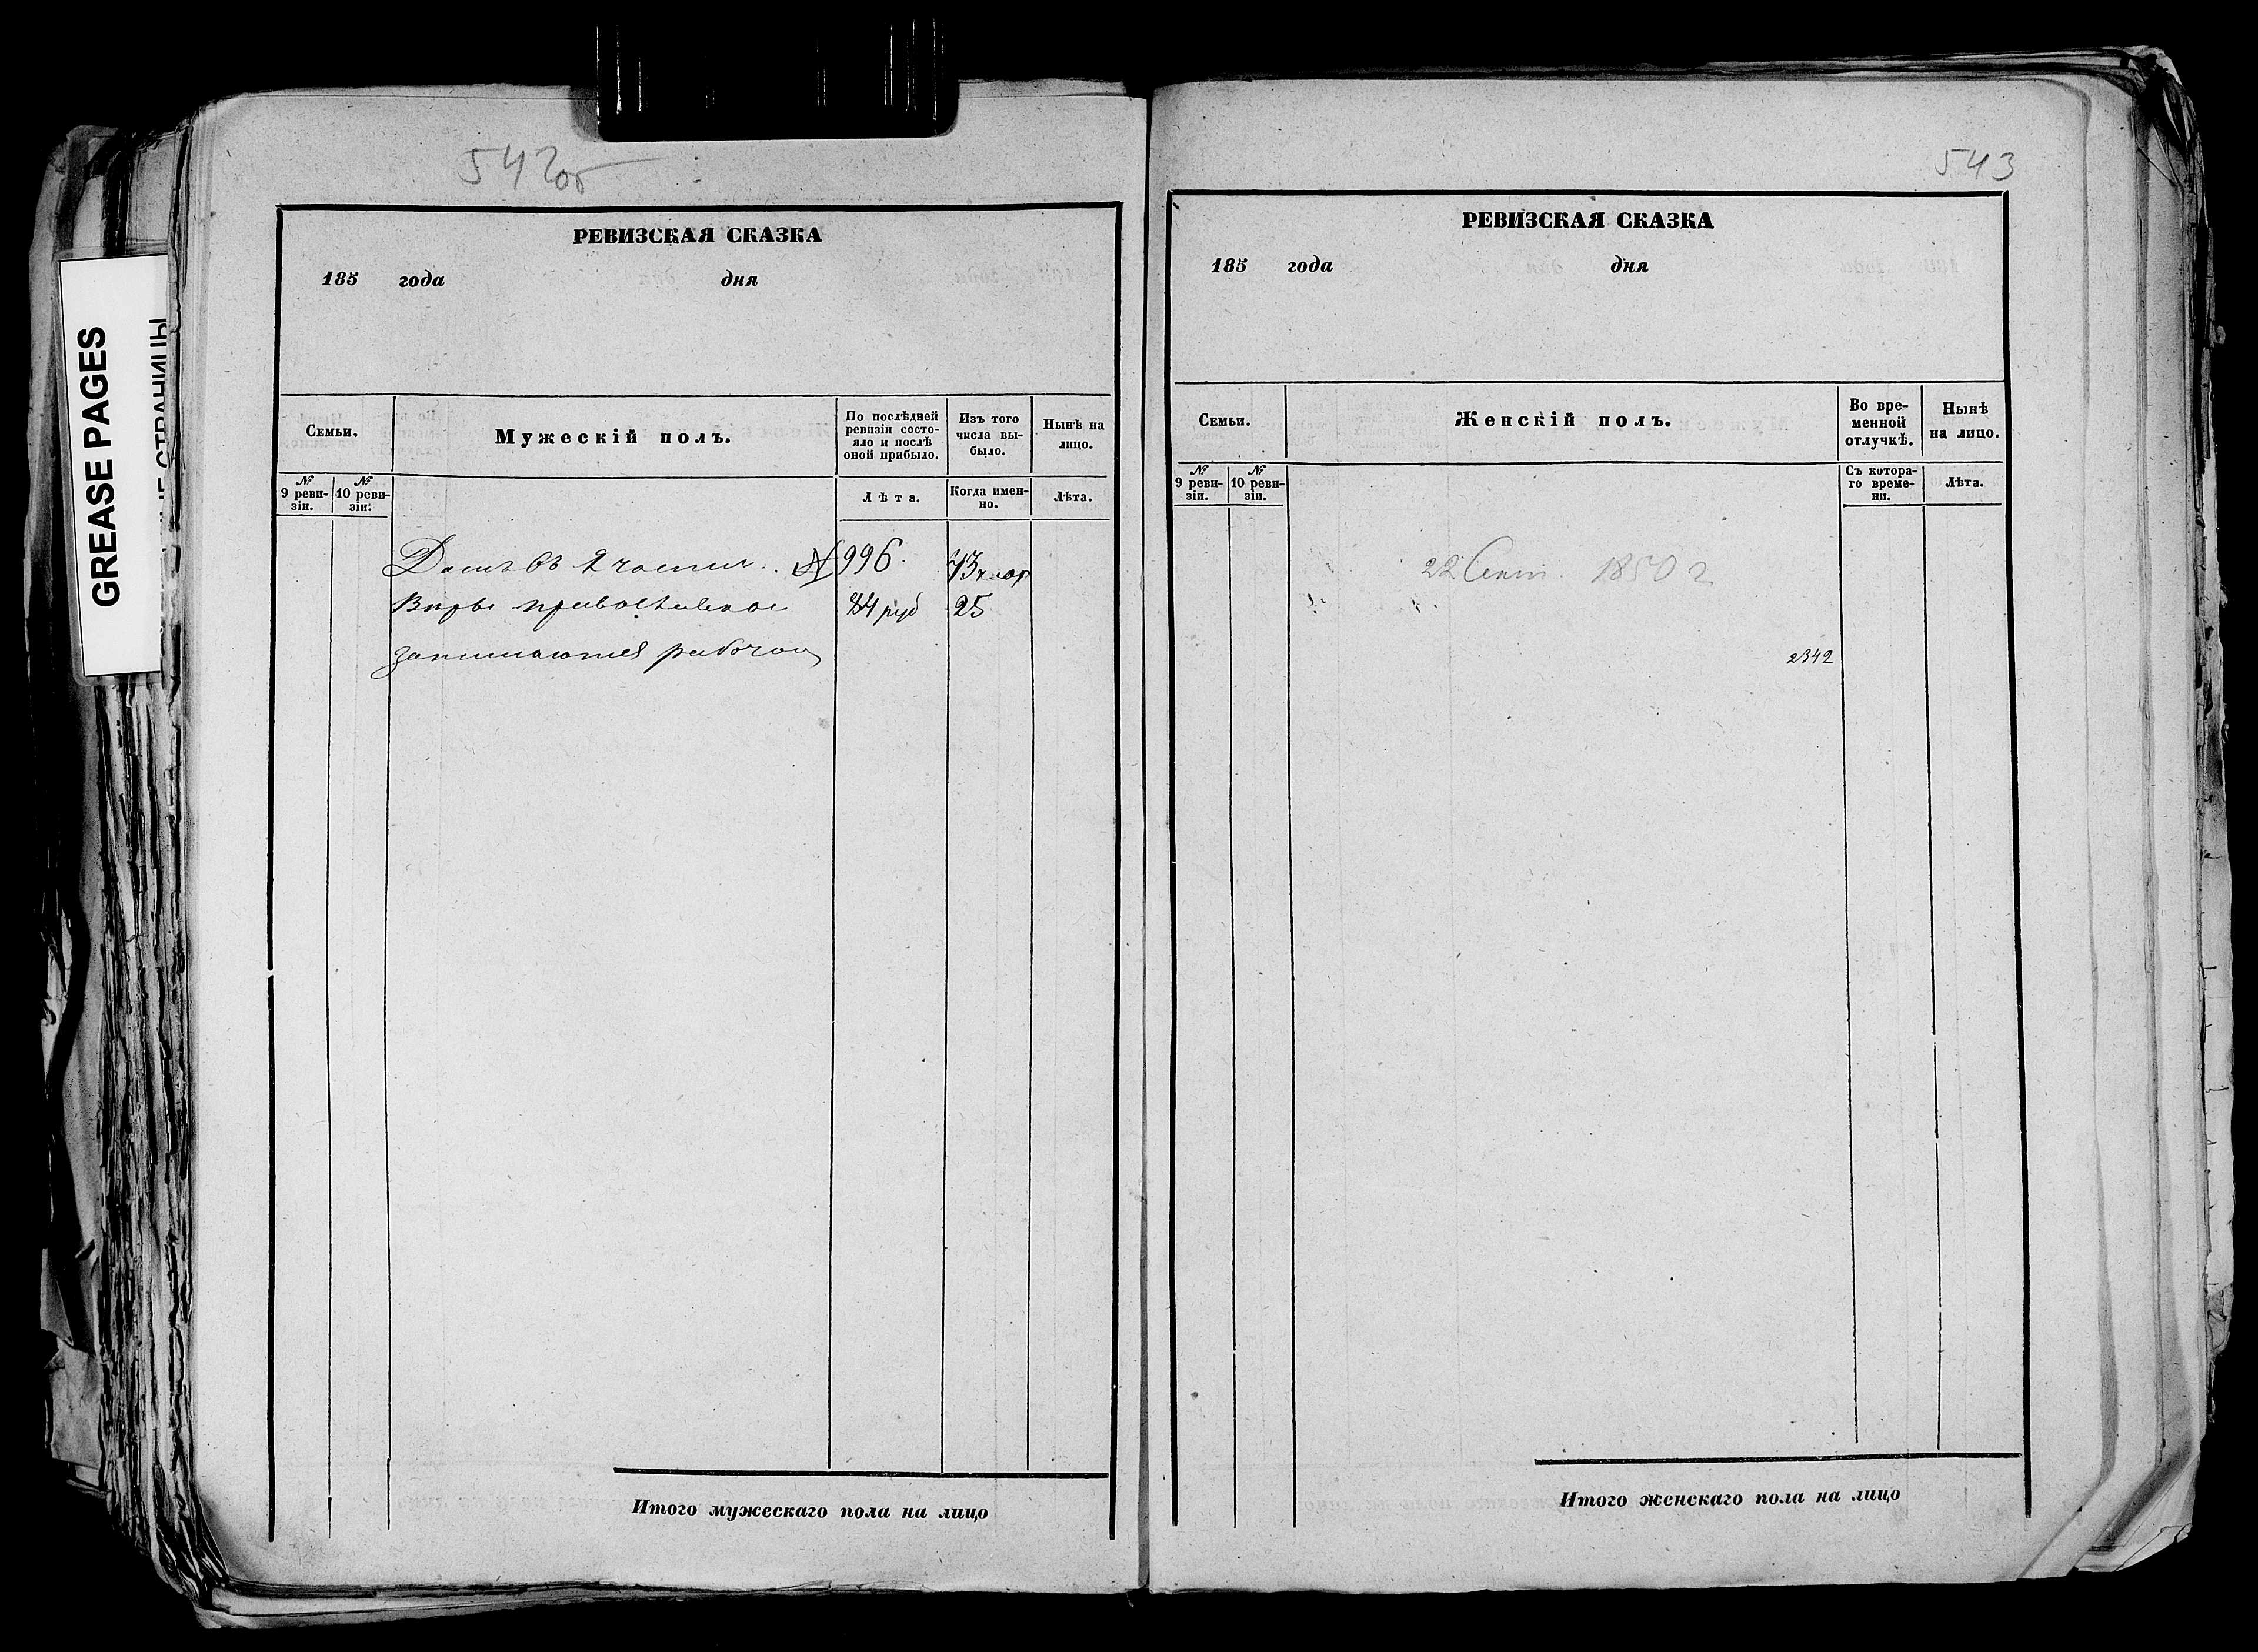 542об
РЕВИЗСКАЯ СКАЗКА
185 года дня
Семьи.
Мужескій полъ.
По послѣдней ревизіи состояло и послѣ оной прибыло.
Изъ того числа выбыло.
Нынѣ на лицо.
№ 9 ревизіи.
№ 10 ревизіи.
Лѣта.
Когда именно.
Лѣта.
Домъ въ 2 части. № 996.
Вѣры православной 84 руб 25
занимаются работою
Итого мужескаго пола на лицо
543
РЕВИЗСКАЯ СКАЗКА
185 года дня
Семьи.
Женскій полъ.
Во временной отлучкѣ.
Нынѣ на лицо.
№ 9 ревизіи.
№ 10 ревизіи.
Съ котораго времени.
Лѣта.
22 Сент. 1850 г
2342
Итого женскаго пола на лицо
GREASE PAGES
СТРАНИЦЫ